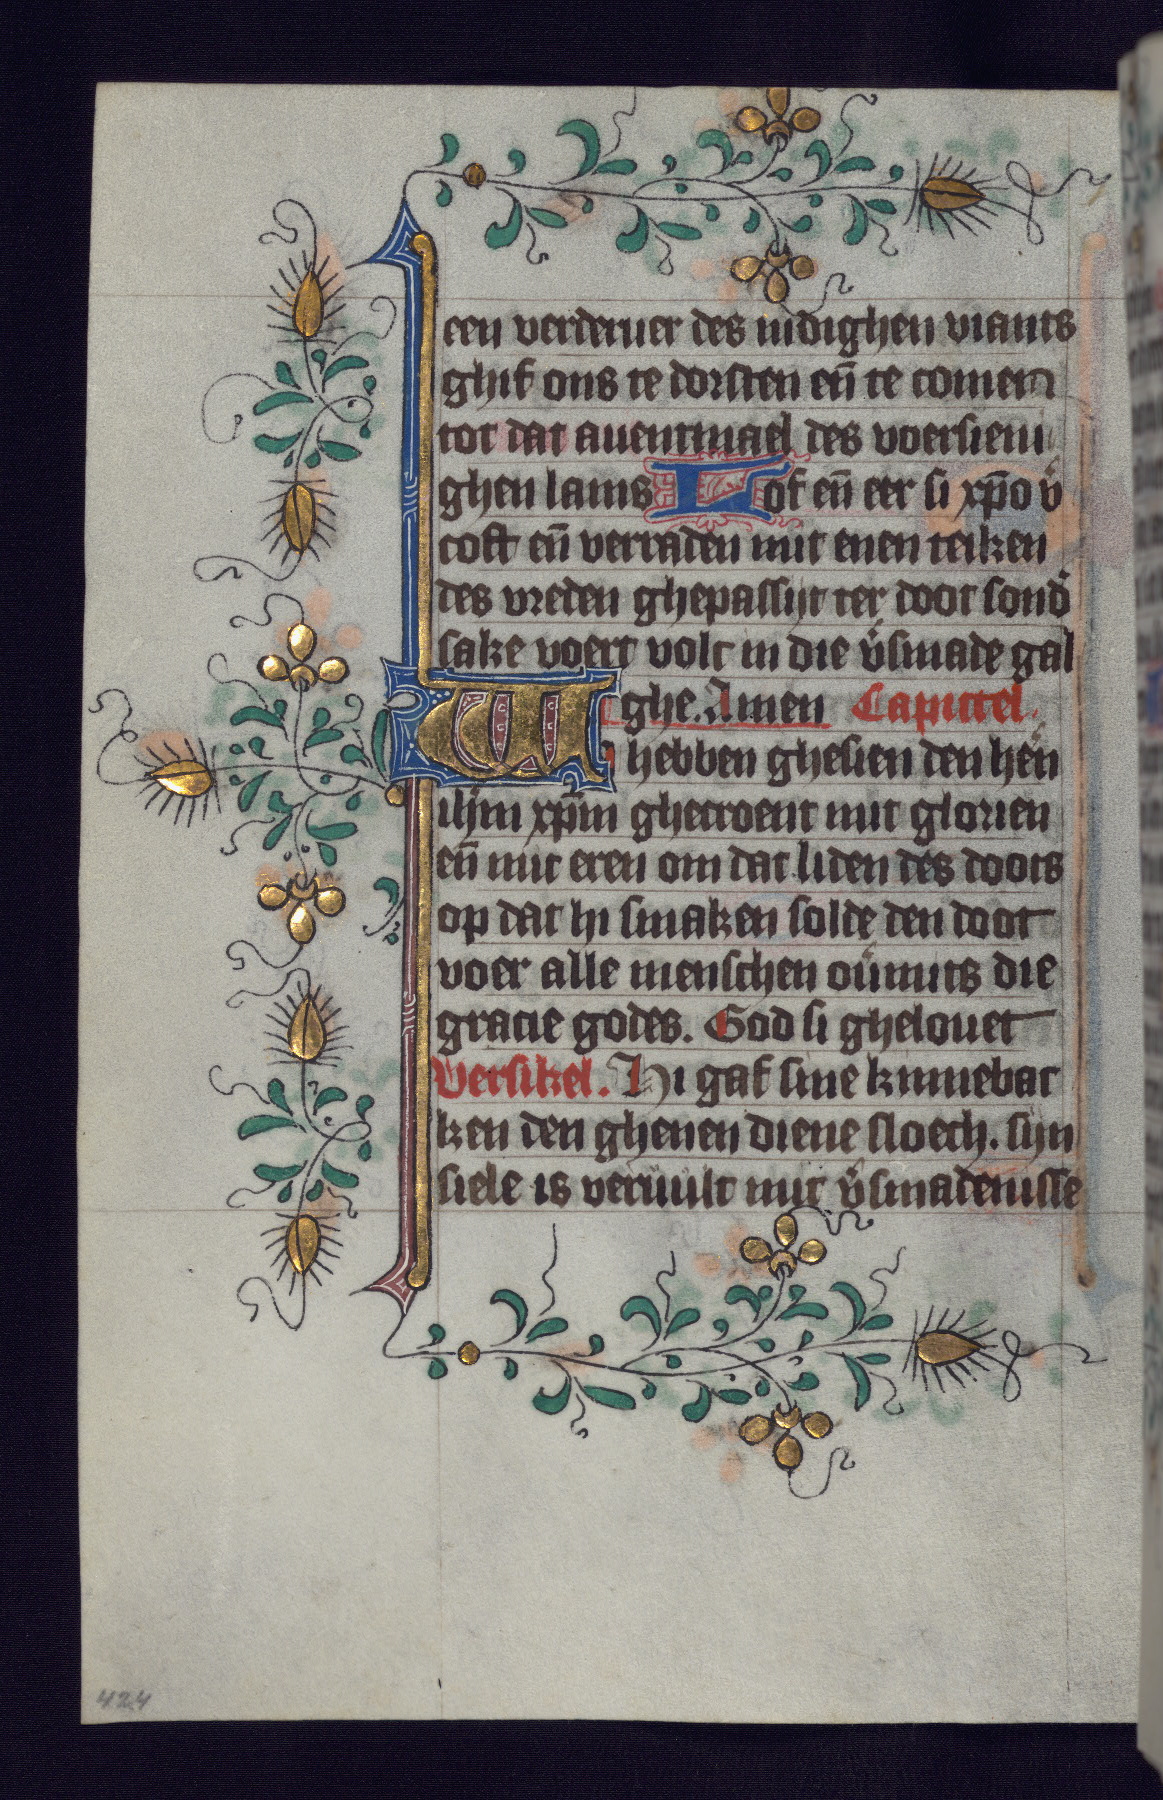 een verderuer des nidighen viants
ghif ons te dorsten en̄ te comen
tot dat auentmael des voersieni
ghen lams Lof en̄ eer si xp̄o v̛
coft en̄ verraden mit enen teiken
des vreden ghepassijt ter doot sond̛
sake voert volc in die v̛smade gal
ghe. Amen Capittel.
Wi hebben ghesien den hēn
ih̄m xp̄m ghecroent mit glorien
en̄ mit eren om dat liden des doots
op dat hi smaken solde den doot
voer alle menschen oưmits die
gracie godes. God si ghelouet
Versikel. Hi gaf sine kinnebac
ken den ghenen diene sloech. sijn
siele is veruult mit v̛smadenisse
424